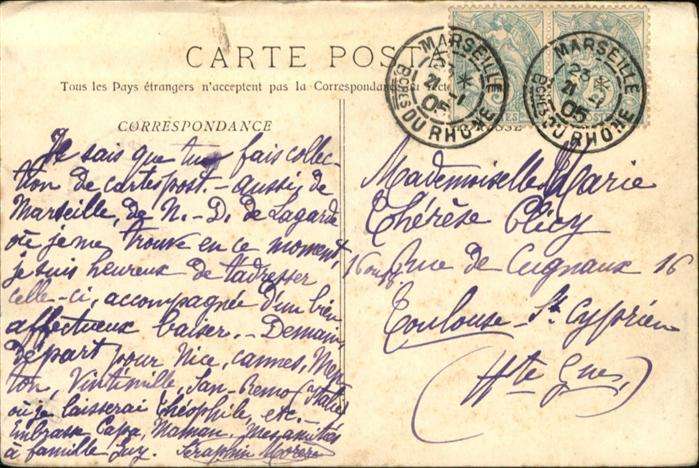 CARTE POSTALE
Tous les Pays étrangers n'acceptent pas la Correspondance au recto
CORRESPONDANCE
MARSEILLE
23 *
21 -1
05
BCHES DU RHONE
MARSEILLE
23 *
21 -1
05
BCHES DU RHONE
Je sais que tu fais collec-
tion de cartes post. - aussi, de
Marseille, de N.-D. de Lagarde
où je me trouve en ce moment,
je suis heureux de t'adresser
celle-ci, accompagnée d'un bien
affectueux baiser. - Demain,
départ pour Nice, Cannes, Men-
ton, Vintimille, San-Remo (Italie)
où je laisserai Théophile, etc. -
Embrasse Papa, Maman. Mes amitiés
à famille Guy. Séraphin
Mademoiselle Marie
Thérèse
16 Rue de Cugnaux 16
Toulouse - St Cyprien
(Hte Gne)